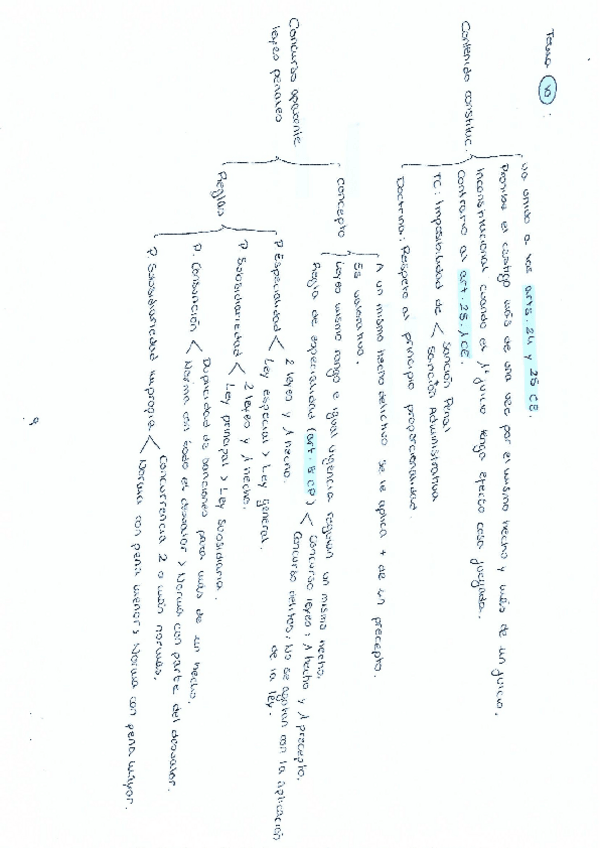 Tema 10 :
Contenido constituc.
va unido a los arts. 24 y 25 CE.
Prohíbe el castigo más de una vez por el mismo hecho y más de un juicio.
Inconstitucional cuando el 1º juicio tenga efecto cosa juzgada.
Contrario al art. 25.1 CE.
TC: Imposibilidad de < Sanción Penal
Sanción Administrativa
Doctrina: Respeto al principio proporcionalidad.
Concurso aparente
leyes penales
Concepto
A un mismo hecho delictivo se le aplica + de un precepto.
Es valorativo.
Leyes mismo rango e igual vigencia regulan un mismo hecho.
Regla de especialidad (art. 8 CP) < Concurso leyes: 1 hecho y 1 precepto.
Concurso delitos: No se agotan con la aplicación
de la ley.
Reglas
P Especialidad < 2 leyes y 1 hecho.
Ley especial > Ley general.
P Subsidiariedad < 2 leyes y 1 hecho.
Ley principal > Ley Subsidiaria.
P. Consunción < Duplicidad de sanciones para más de un hecho.
Norma con todo el desvalor > Norma con parte del desvalor.
P Subsidiariedad impropia < Concurrencia 2 o más normas.
Norma con pena menor > Norma con pena mayor.